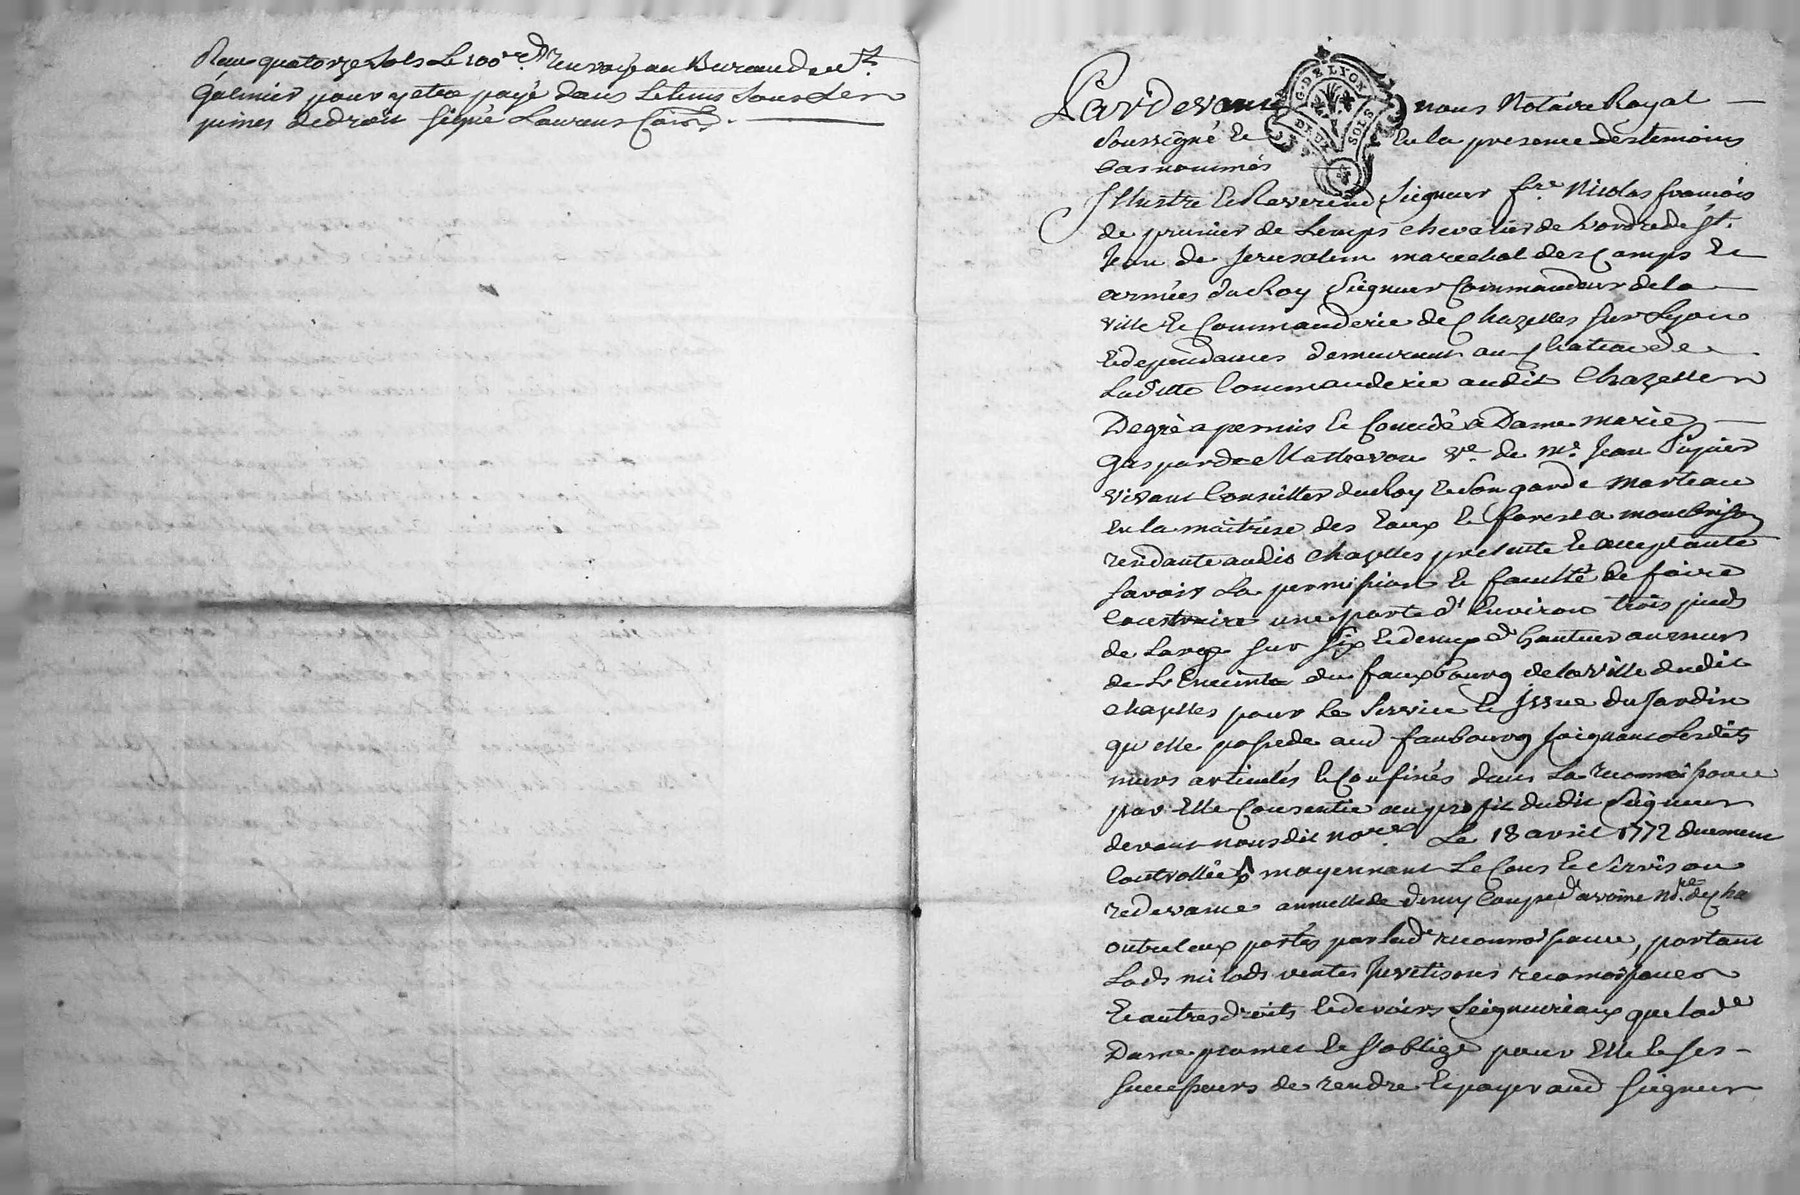 Reçu quatorze sols le 100e d. renvoyé au Bureau de St.
Galmier pour y etre payé dans le tems sous les
peines de droit signé Laurenscon
G. DE LYON
DEUX SOLS
Pardevant nous Notaire Royal
soussigné et en la presence des temoins
bas nommés
Illustre et Reverend Seigneur fre. Nicolas françois
de prunier de Lemps chevalier de Lordre de St.
Jean de Jerusalem marechal des Camps et
armées du Roy Seigneur Commandeur de la
ville et Commanderie de Chazelles sur Lyon
et dependances demeurant au Chateau de
Laditte Commanderie audit Chazelles
De gré a permis et Concédé a Dame marie
Gasparde Mathevon ve. de Mr. Jean Pupier
vivant Conseiller du Roy et son garde marteau
en la maitrise des Eaux et forest a montbrison
residante audit chazelles presente et acceptante
savoir La permission et faculté de faire
construire une porte d'environ trois pieds
de Large sur six et demy d'hauteur au murs
de L'Enceinte du fauxbourg de la ville dudit
chazelles pour le service et Issue du Jardin
qu'elle possede aud faubourg joignant Lesdits
murs articulés et Confinés dans La reconnoissance
par Elle Consentie au profit dudit Seigneur
devant nousdit nore. Le 18 avril 1772 duement
Controllée moyennant Le Cens et Servis ou
redevance annuelle de demy Coupe d'avoine me. de Cha
outre ceux portés par lade reconnoissance, portant
Lods milods ventes Investisons reconnoissances
et autres droits et devoirs Seigneuriaux que lade
Dame promet et s'oblige pour Elle et ses
successeurs de rendre et payer aud Seigneur